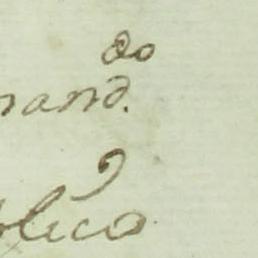 do
nand.
blico